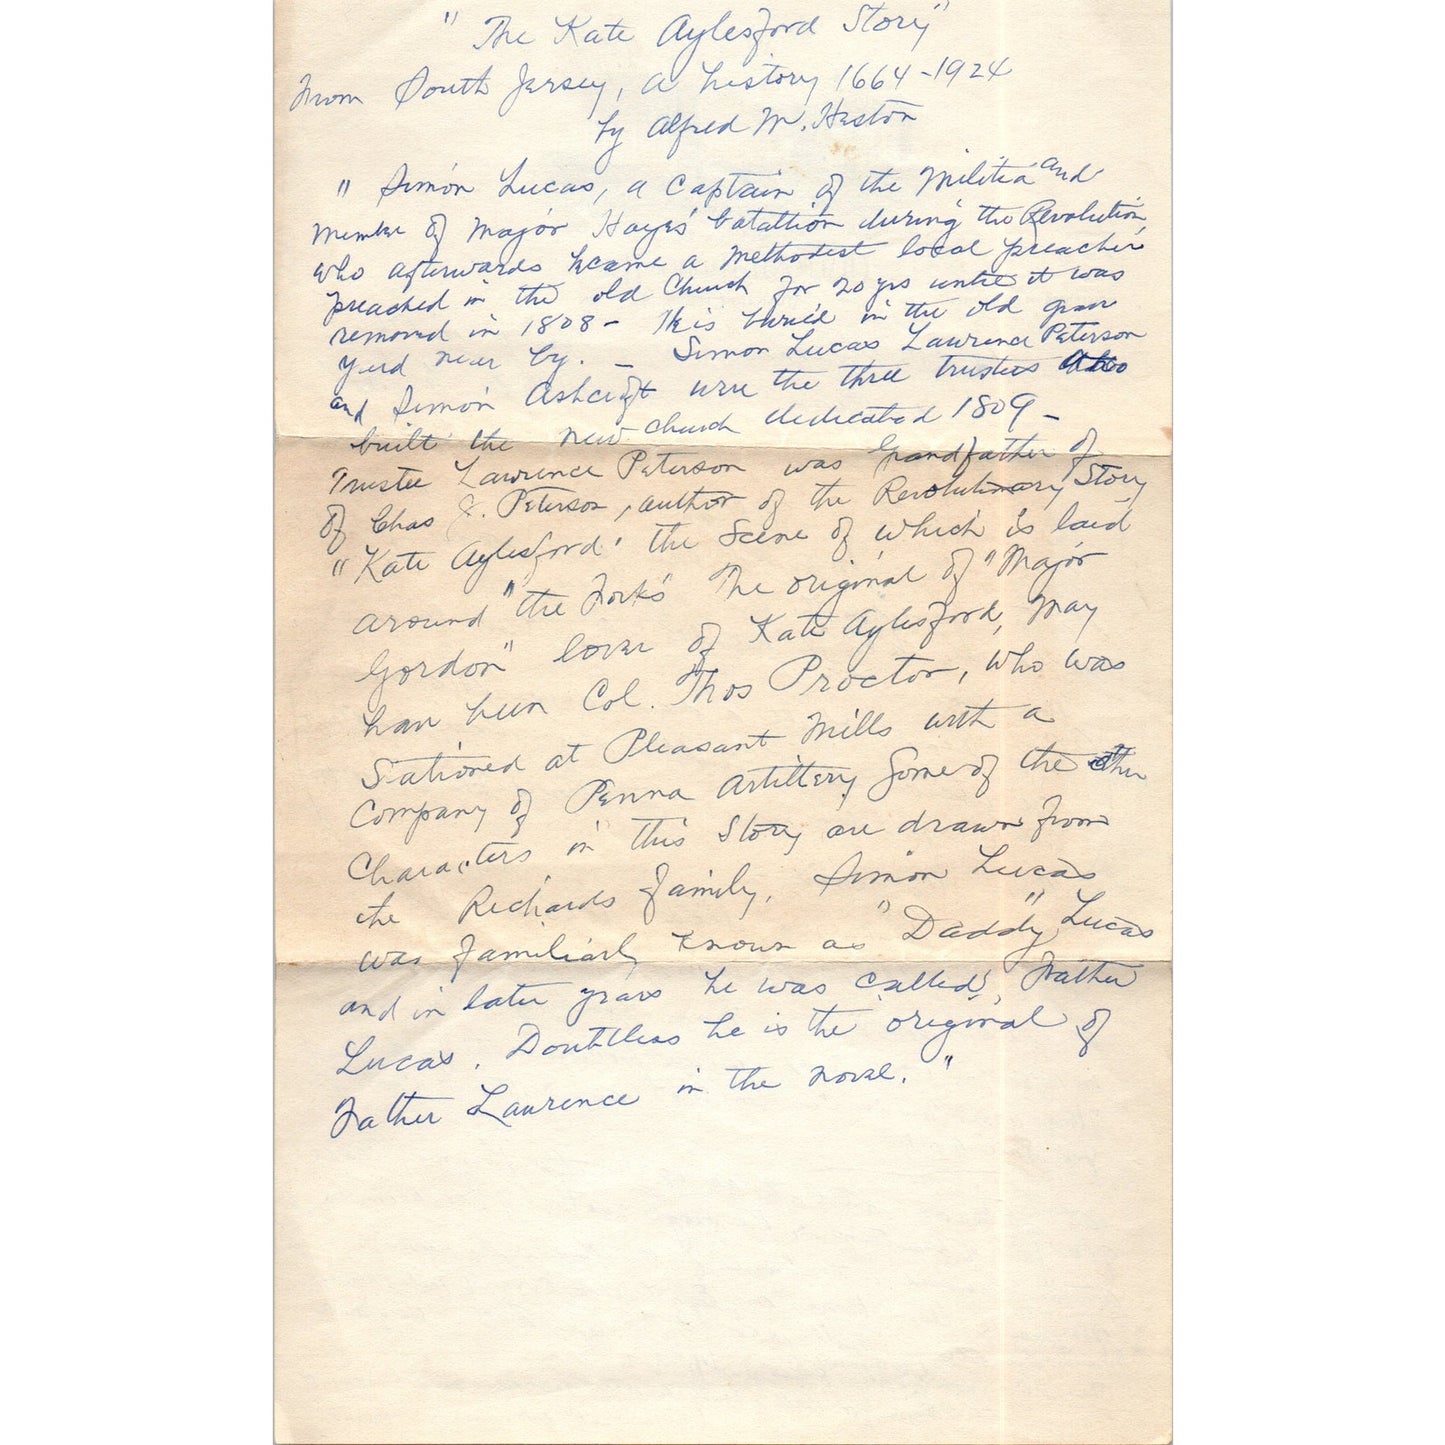 "The Kate Aylesford Story"
From South Jersey, a history 1664-1924
by Alfred M. Heston
" Simon Lucas, a Captain of the Militia and
member of Major Hayes' batattion during the Revolution,
who afterwards became a Methodist local preacher
preached in the old Church for 20 yrs until it was
removed in 1808 - He is buried in the old grave
yerd near by. - Simon Lucas Lawrence Peterson
and Simon Ashcraft were the three trustees who
built the new church dedicated 1809 -
Trustee Lawrence Peterson was Grandfather of
of Chas J. Peterson, author of the Revolutionary Story
"Kate Aylesford" the Scene of which is laid
around "the Forks" The original of "Major
Gordon" lover of Kate Aylesford, may
have been Col. Thos Proctor, who was
Stationed at Pleasant Mills with a
Company of Penna Artillery Some of the other
Characters in this Story are drawn from
the Richards family. Simon Lucas
was familiarly known as "Daddy" Lucas
and in later years he was called, Father
Lucas. Doubtless he is the original of
Father Lawrence in the novel."